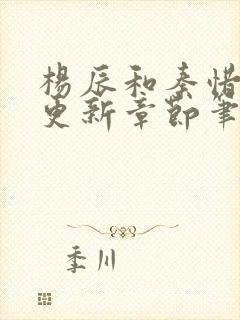 楊辰和秦惜
更新章節筆
季川